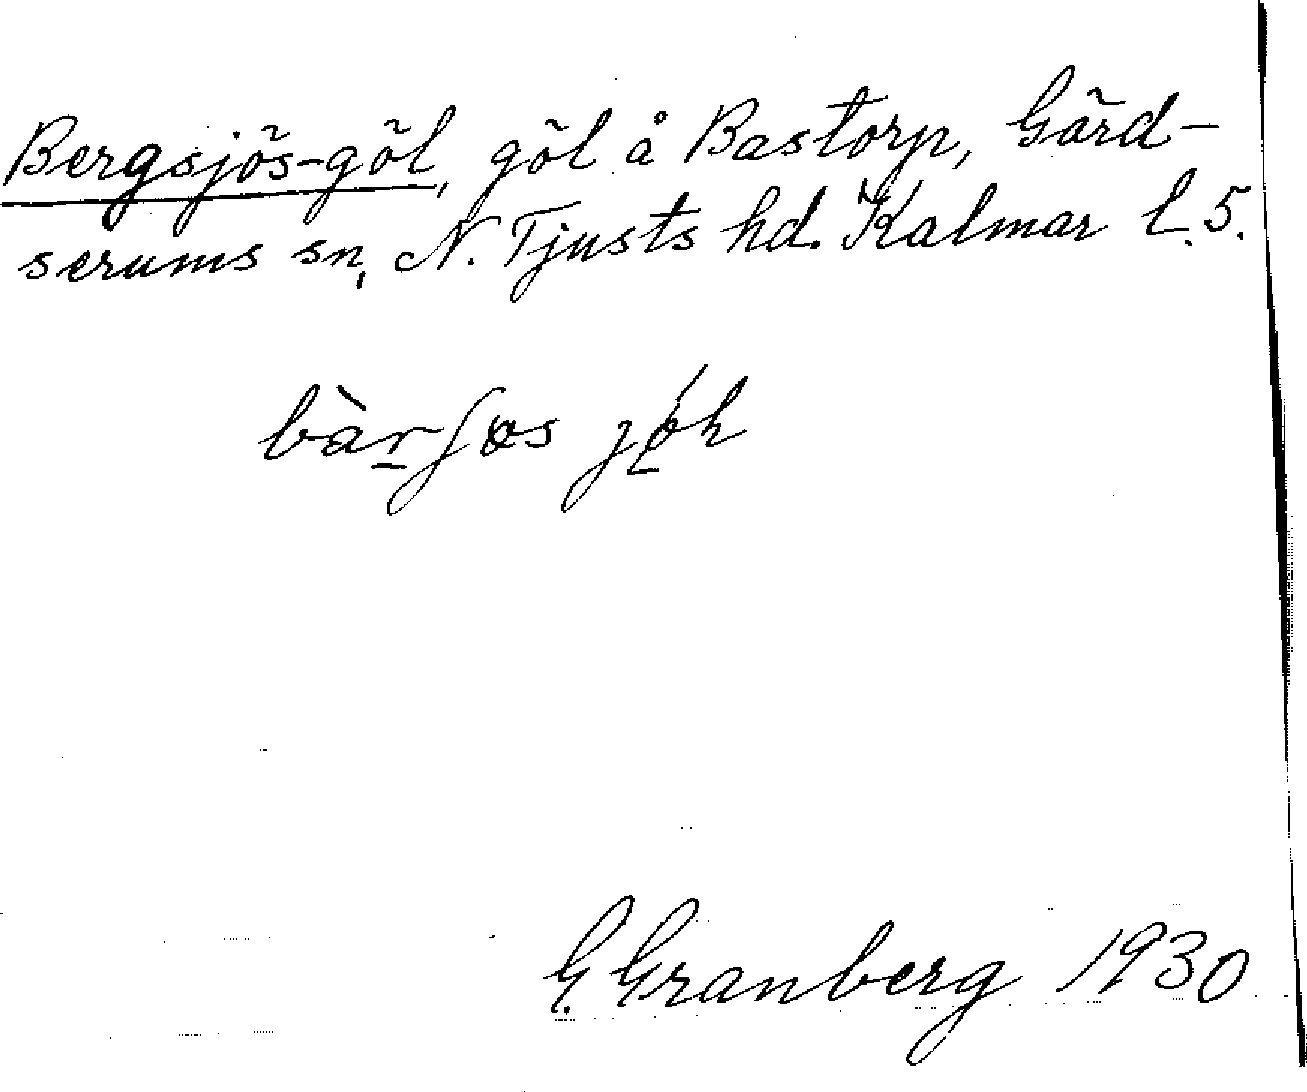 Bergsjös-göl, göl å Bastorp, Gärd-
serums sn, N. Tjusts hd. Kalmar l. 5.
bàrʃøs jǿh
G. Granberg 1930